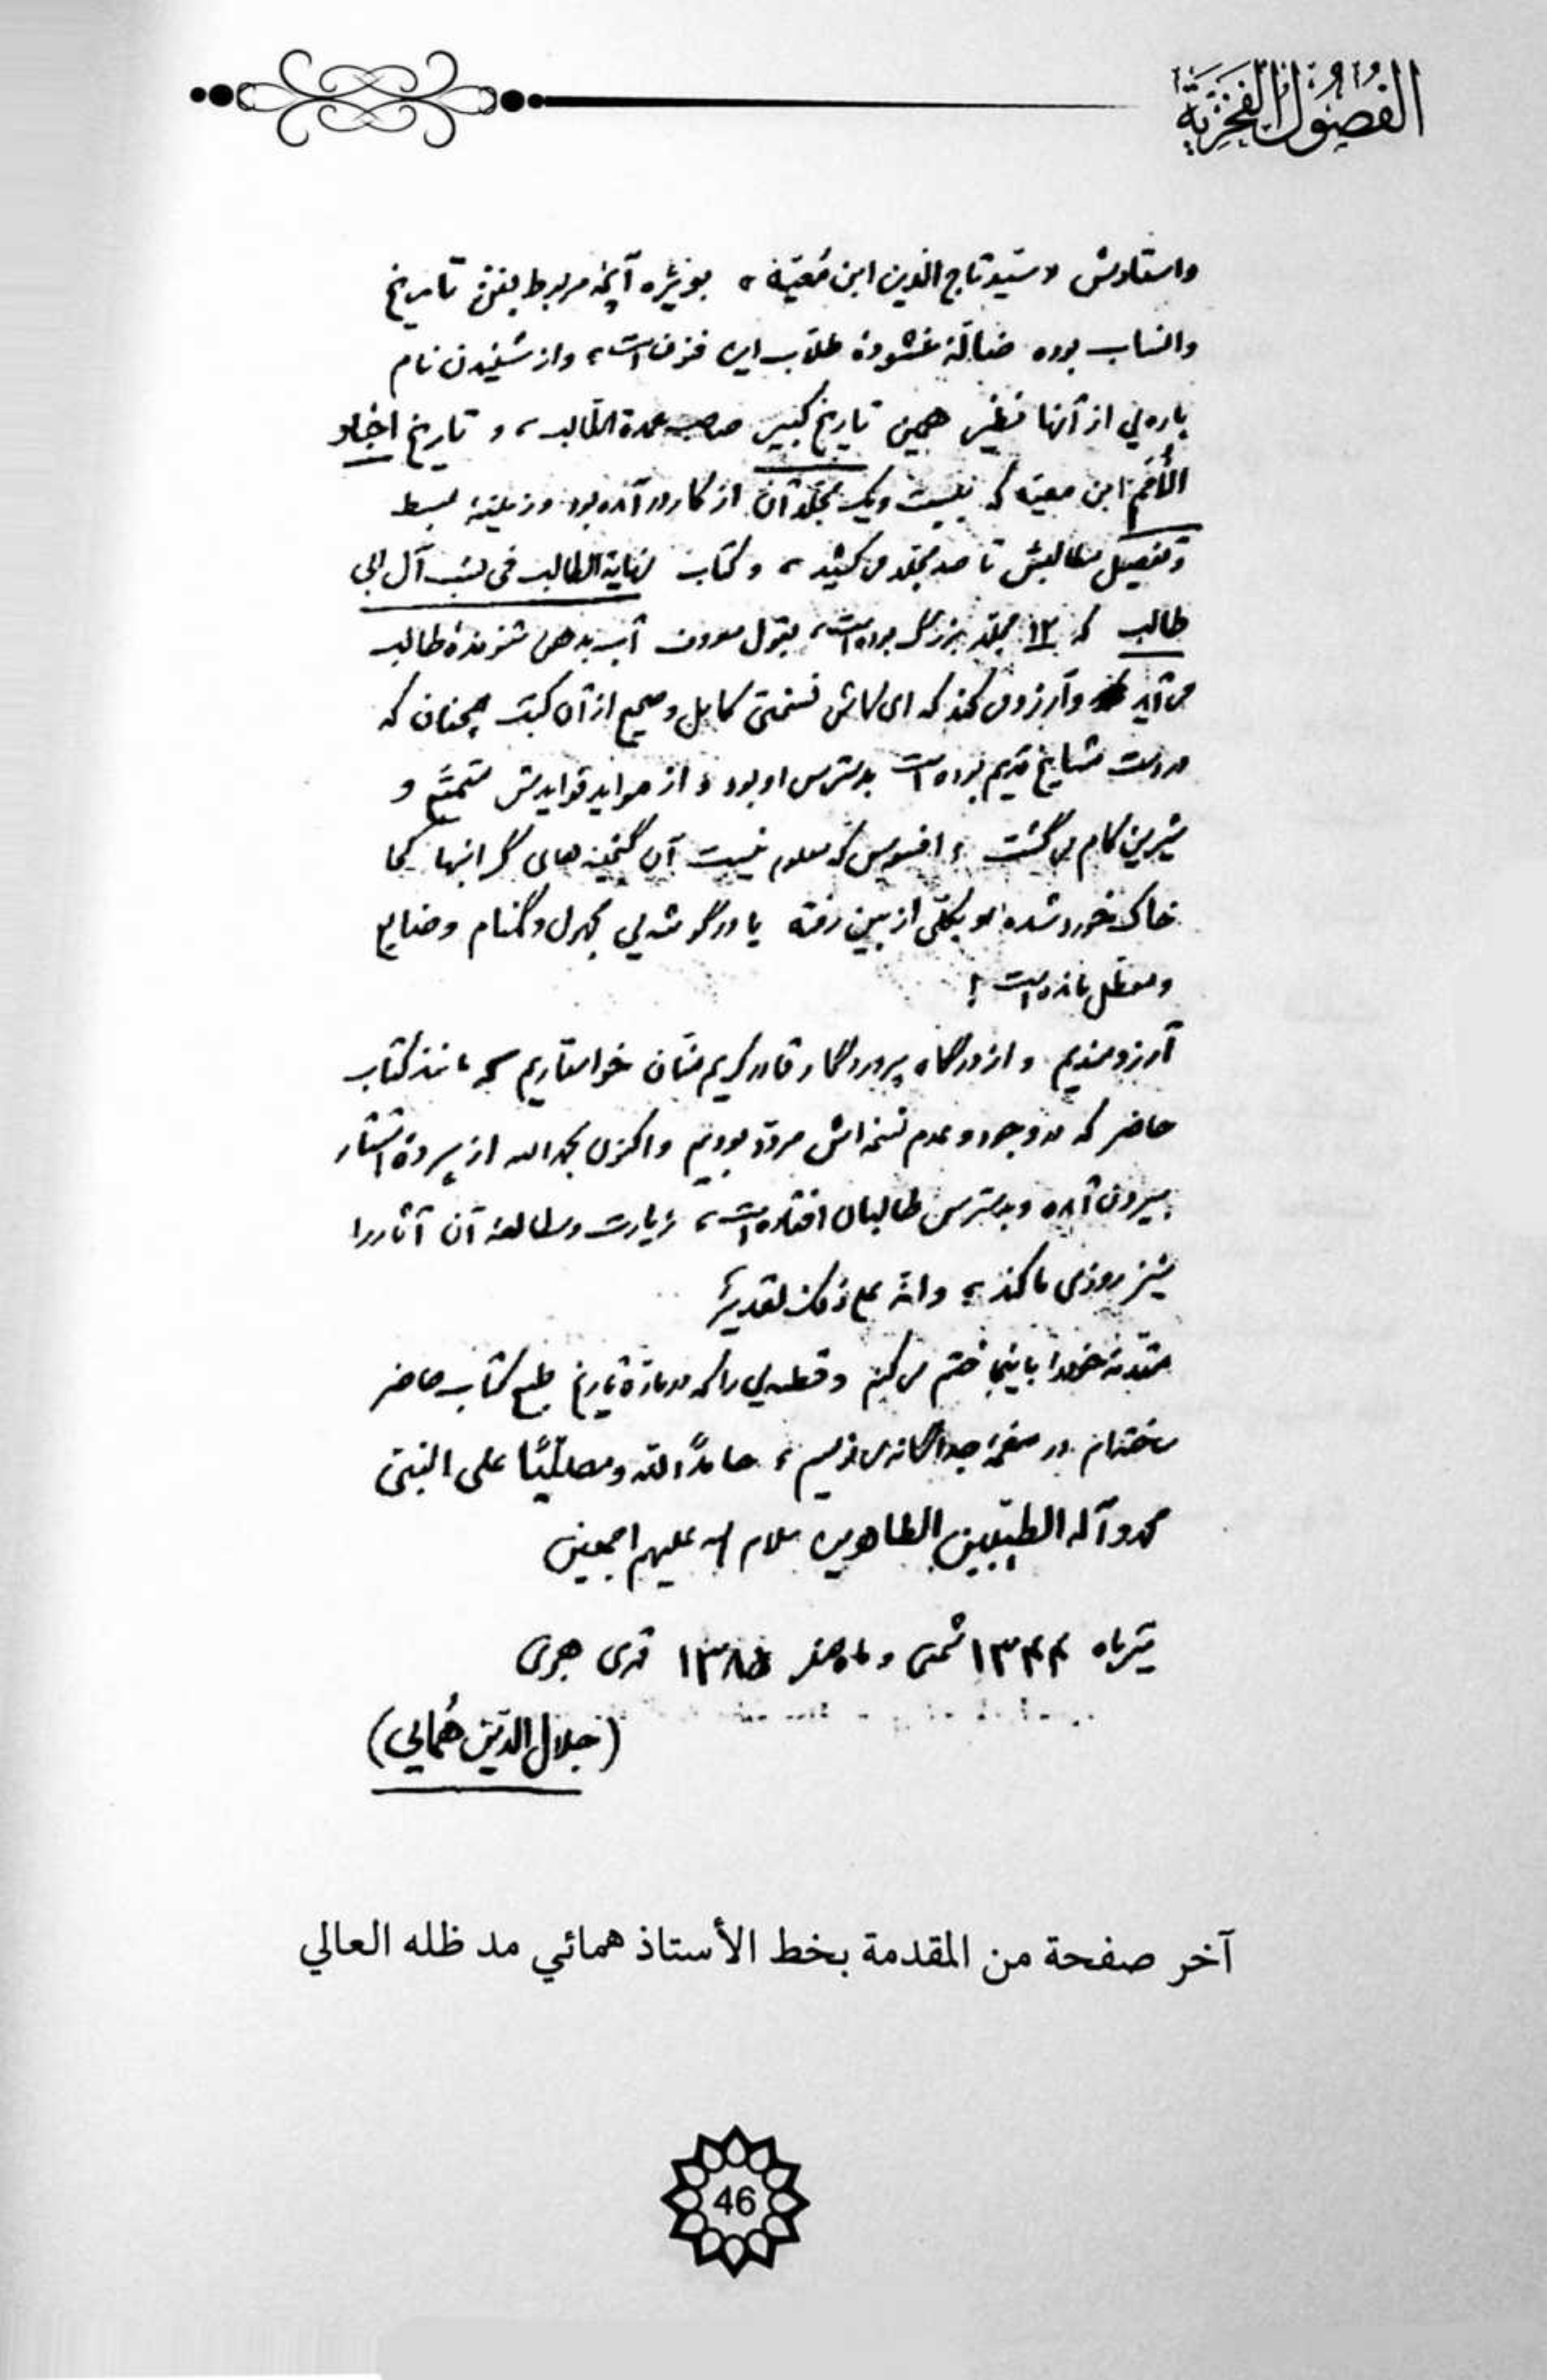 الفُصُولُ الفَخْرِيَّة
واستادش «سیّد تاج الدین ابن مُعَیّة» بویژه آنچه مربوط بفنّ تاریخ
وانساب بوده ضالّهٔ طلاّب این فنون است، واز شنیدن نام
پاره‌یی از آنها نظیر همین تاریخ کبیر صاحب عمدة الطّالب، و تاریخ اخبار
الأُمَم ابن معیّه که بیست ویک مجلّد آن از کار در آمده بود و بسط
وتفصیل مطالبش تا صد مجلّد می‌کشید، و کتاب نهایة الطالب فی نسب آل ابی
طالب که ۱۲ مجلّد بزرگ بوده است، بقول معروف آب بدهن شنوندهٔ طالب
می‌آید وآرزو می‌کند که ای کاش نسختی کامل و صحیح از آن کتب همچنان که
در دست مشایخ قدیم بوده است بدسترس او بود و از فوایدش متمتّع و
شیرین کام می‌گشت، افسوس که معلوم نیست آن گنجینه‌های گرانبها کجا
خاک خورد شده و بکلّی از بین رفته یا در گوشه‌یی مجهول و گمنام وضایع
ومعطّل مانده است!
آرزومندیم و از درگاه پروردگار قادر کریم منّان خواستاریم که مانند کتاب
حاضر که در وجود و عدم نسخه‌اش مردّد بودیم و اکنون بحمدالله از پردهٔ استتار
بیرون آمده و بدسترس طالبان افتاده است، زیارت و مطالعهٔ آن آثار را
نیز روزی ما کند، وانّه علی ذلک لقدیر
مقدمهٔ خود را باینجا ختم می‌کنم و قطعه‌یی را که دربارهٔ تاریخ طبع کتاب حاضر
ساخته‌ام در صفحهٔ جداگانه می‌نویسم، حامداً لله ومصلّیًا علی النبیّ
محمد وآله الطیّبین الطاهرین سلام الله علیهم اجمعین
تیرماه ۱۳۴۴ شمسی و ماه صفر ۱۳۸۵ قمری هجری
(جلال الدّین هُمایی)
آخر صفحة من المقدمة بخط الأستاذ همائي مد ظله العالي
46